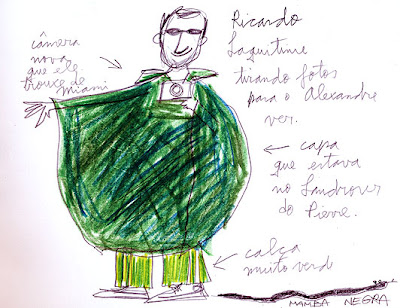 câmera
nova
que ele
trouxe de
Miami
Ricardo
tirando fotos
para o Alexandre
ver.
capa
que estava
no Landrover
do Pierre.
calça
muito verde
MAMBA NEGRA